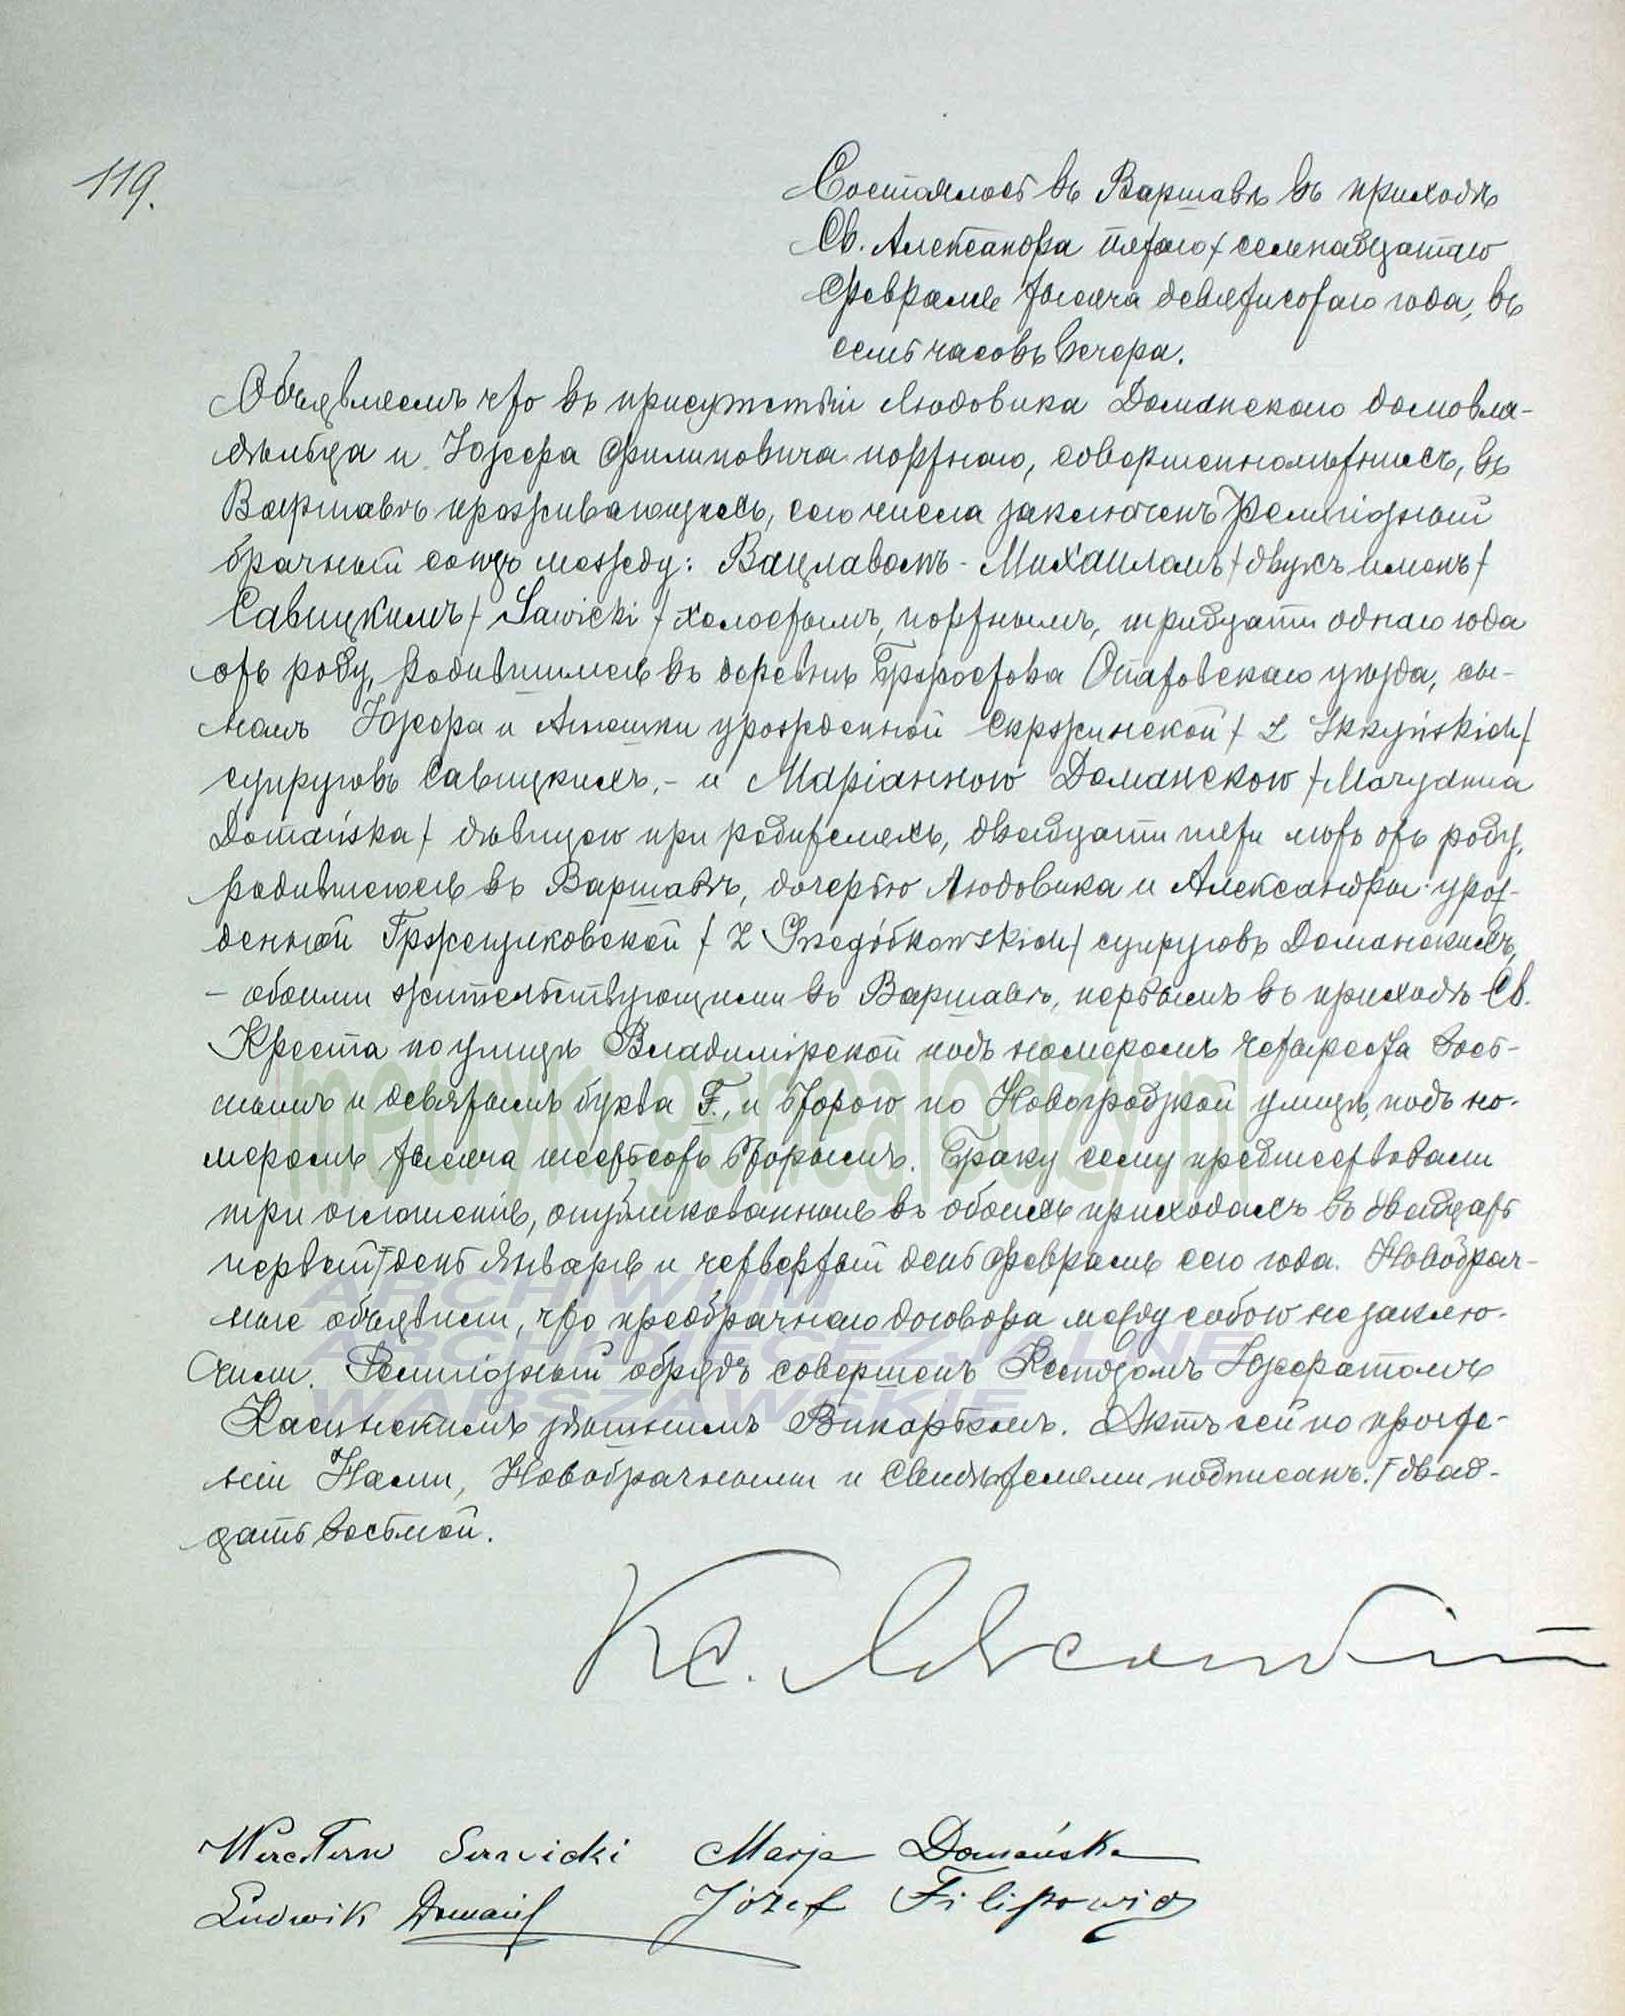 119.
Состоялось въ Варшавѣ въ приходѣ
Св. Александра пятаго/семнадцатаго
Февраля тысяча девятисотаго года, въ
семь часовъ вечера.
Объявляемъ что въ присутствіи Людовика Доманскаго домовла-
дѣльца и Юзефа Филиповича портнаго, совершеннолѣтнихъ, въ
Варшавѣ проживающихъ, сего числа заключенъ религіозный
брачный союзъ между: Вацлавомъ-Михаиломъ/двухъ именъ/
Савицкимъ/Sawicki/холостымъ, портнымъ, тридцати одного года
отъ роду, родившимся въ деревнѣ Бржостова Опатовскаго уѣзда, сы-
номъ Юзефа и Агнешки урожденной Скржинской/z Skrzyńskich/
супруговъ Савицкихъ,- и Маріанною Доманскою/Maryanna
Domańska/ дѣвицею при родителяхъ, двадцати пяти лѣтъ отъ роду,
родившеюся въ Варшавѣ, дочерью Людовика и Александры урож-
денной /z супруговъ Доманскихъ,
- обоими жительствующими въ Варшавѣ, первымъ въ приходѣ Св.
Креста по улицѣ Владимірской подъ номеромъ четыреста вось-
мымъ и девятымъ буква F., и второю по Новогродзкой улицѣ, подъ но-
меромъ тысяча шестьсотъ вторымъ. Браку сему предшествовали
три оглашенія, опубликованныя въ обоихъ приходахъ въ двадцать
первый/день Января и четвертый день Февраля сего года. Новобрач-
ные объявили, что предбрачнаго договора между собою не заклю-
чили. Религіозный обрядъ совершенъ Ксендзомъ Юзефатомъ
здѣшнимъ Викаріемъ. Актъ сей по прочте-
ніи Нами, Новобрачными и Свидѣтелями подписанъ. Г двад-
цать восьмой.
Кс.
Wacław Sawicki Marja Domańska
Ludwik Domański Józef Filipowicz
metryki.genealodzy.pl
ARCHIWUM
ARCHIDIECEZJALNE
WARSZAWSKIE